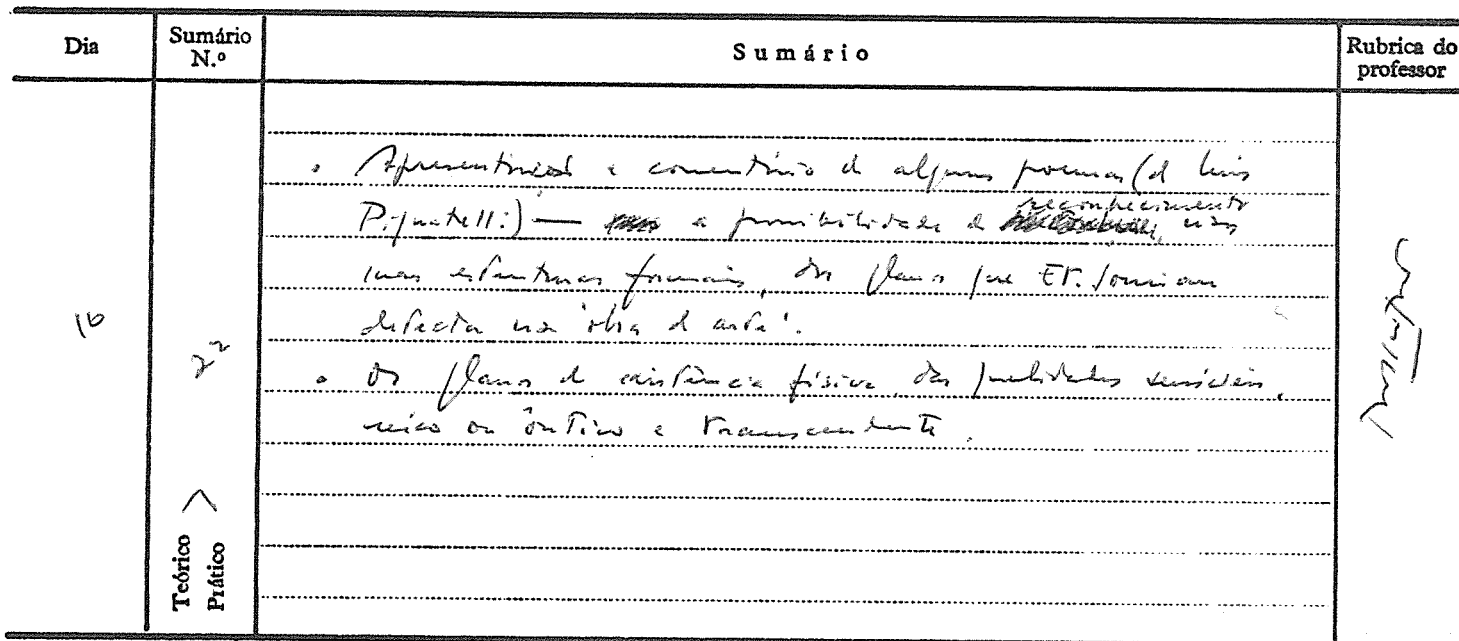 Dia
Sumário N.º
Sumário
Rubrica do professor
• Apresentação e comentário de alguns poemas (de Luis
Pignatelli) — a possibilidade de reconhecimento, nas
suas estruturas formais, dos planos que Et. Souriau
detecta na 'obra de arte'.
10
22
• Os planos de existência física, das qualidades sensíveis,
reico ou ôntico e transcendente.
Teórico
Prático